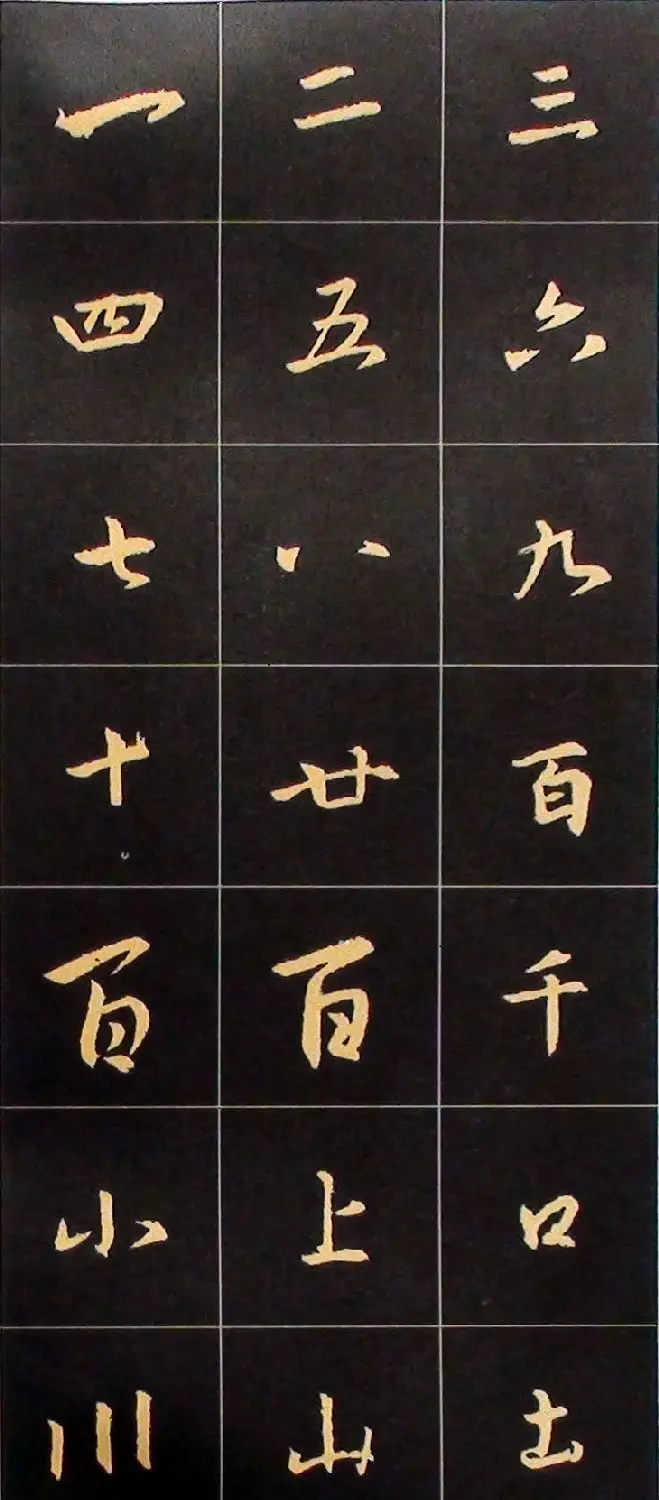 一 二 三
四 五 六
七 八 九
十 廿 百
百 百 千
小 上 口
川 山 土